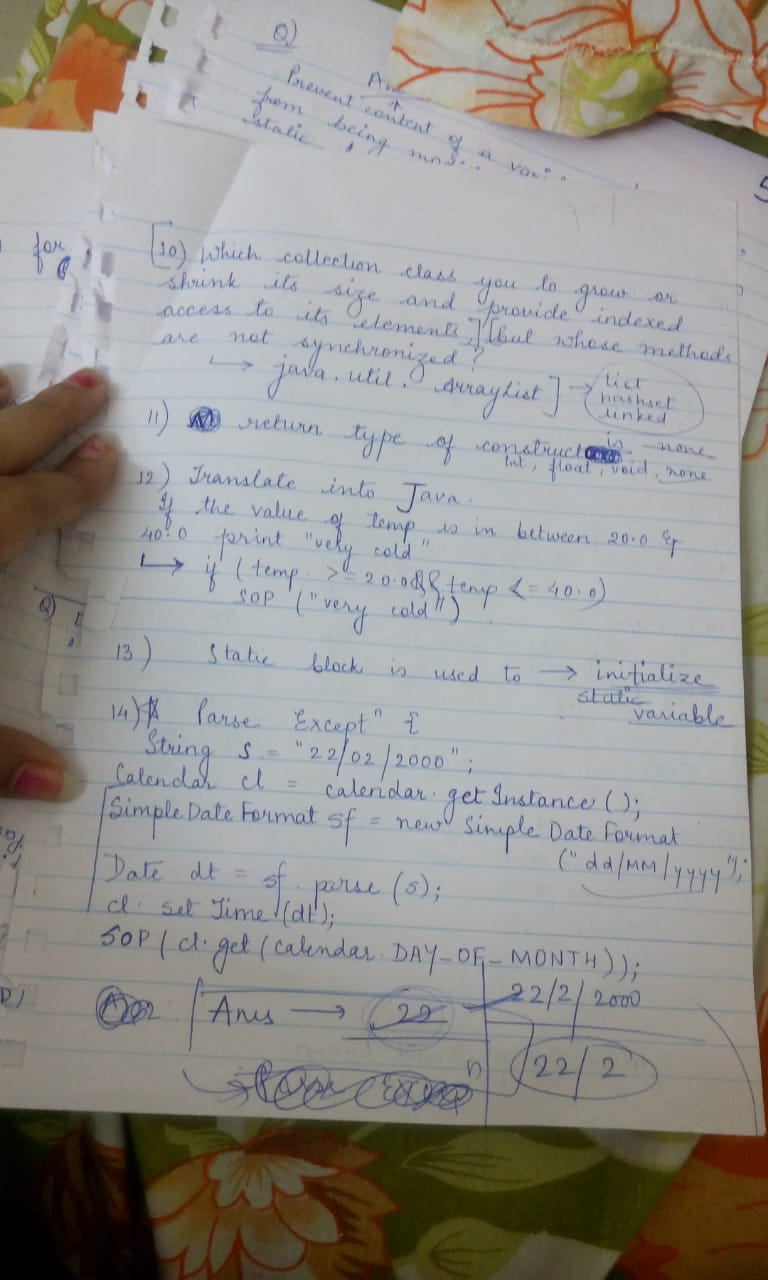 Q)
Ans
Prevent content of a
from being
static
for
[10) Which collection class you to grow or
shrink its size and provide indexed
access to its elements,] [but whose methods
are not synchronized?
↳ java.util.ArrayList] → list
hashset
linked
11) return type of construct is none
int, float, void, none
12) Translate into Java.
If the value of temp is in between 20.0 &
40.0 print "very cold"
↳ if (temp >= 20.0 && temp <= 40.0)
SOP ("very cold")
Q)
13) Static block is used to → initialize
static
variable
14) Parse Exceptⁿ {
String s = "22/02/2000";
Calendar cl = calendar.getInstance();
Simple Date Format sf = new Simple Date Format
("dd/MM/yyyy");
Date dt = sf.parse(s);
cl.set Time(dt);
SOP(cl.get(calendar.DAY_OF_MONTH));
Ans → 22
22/2/2000
22/2